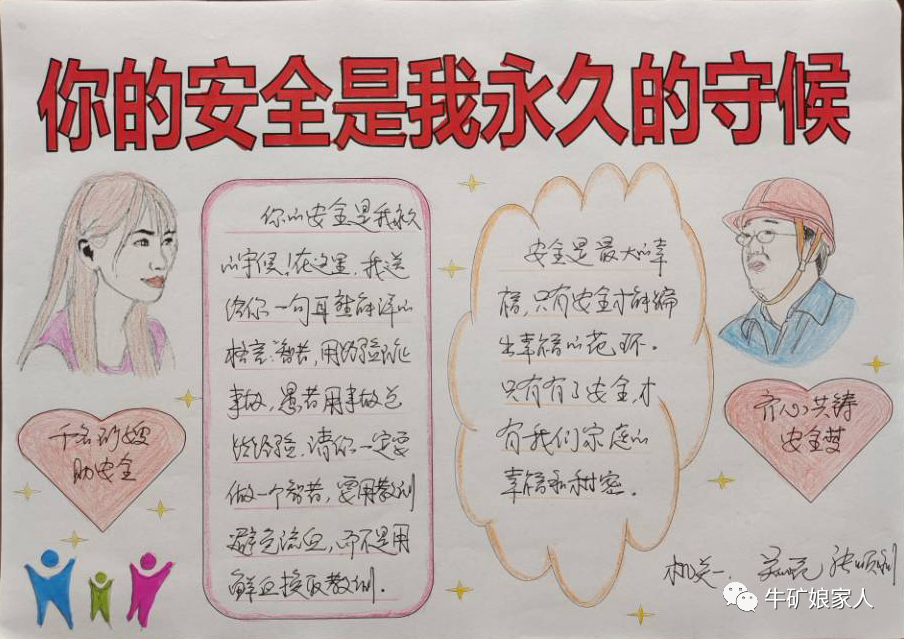 你的安全是我永久的守候
你的安全是我永久
的守候！在这里，我送
给你一句耳熟能详的
格言：智者，用经验防止
事故，愚者用事故总
结经验，请你一定要
做一个智者，要用教训
避免流血，而不是用
鲜血换取教训。
安全是最大的幸
福，只有安全才能编
出幸福的花环。
只有有了安全，才
有我们家庭的
幸福和甜蜜。
千名矿嫂
助安全
齐心共铸
安全梦
机关一
张顺利
牛矿娘家人